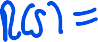 R(s) =